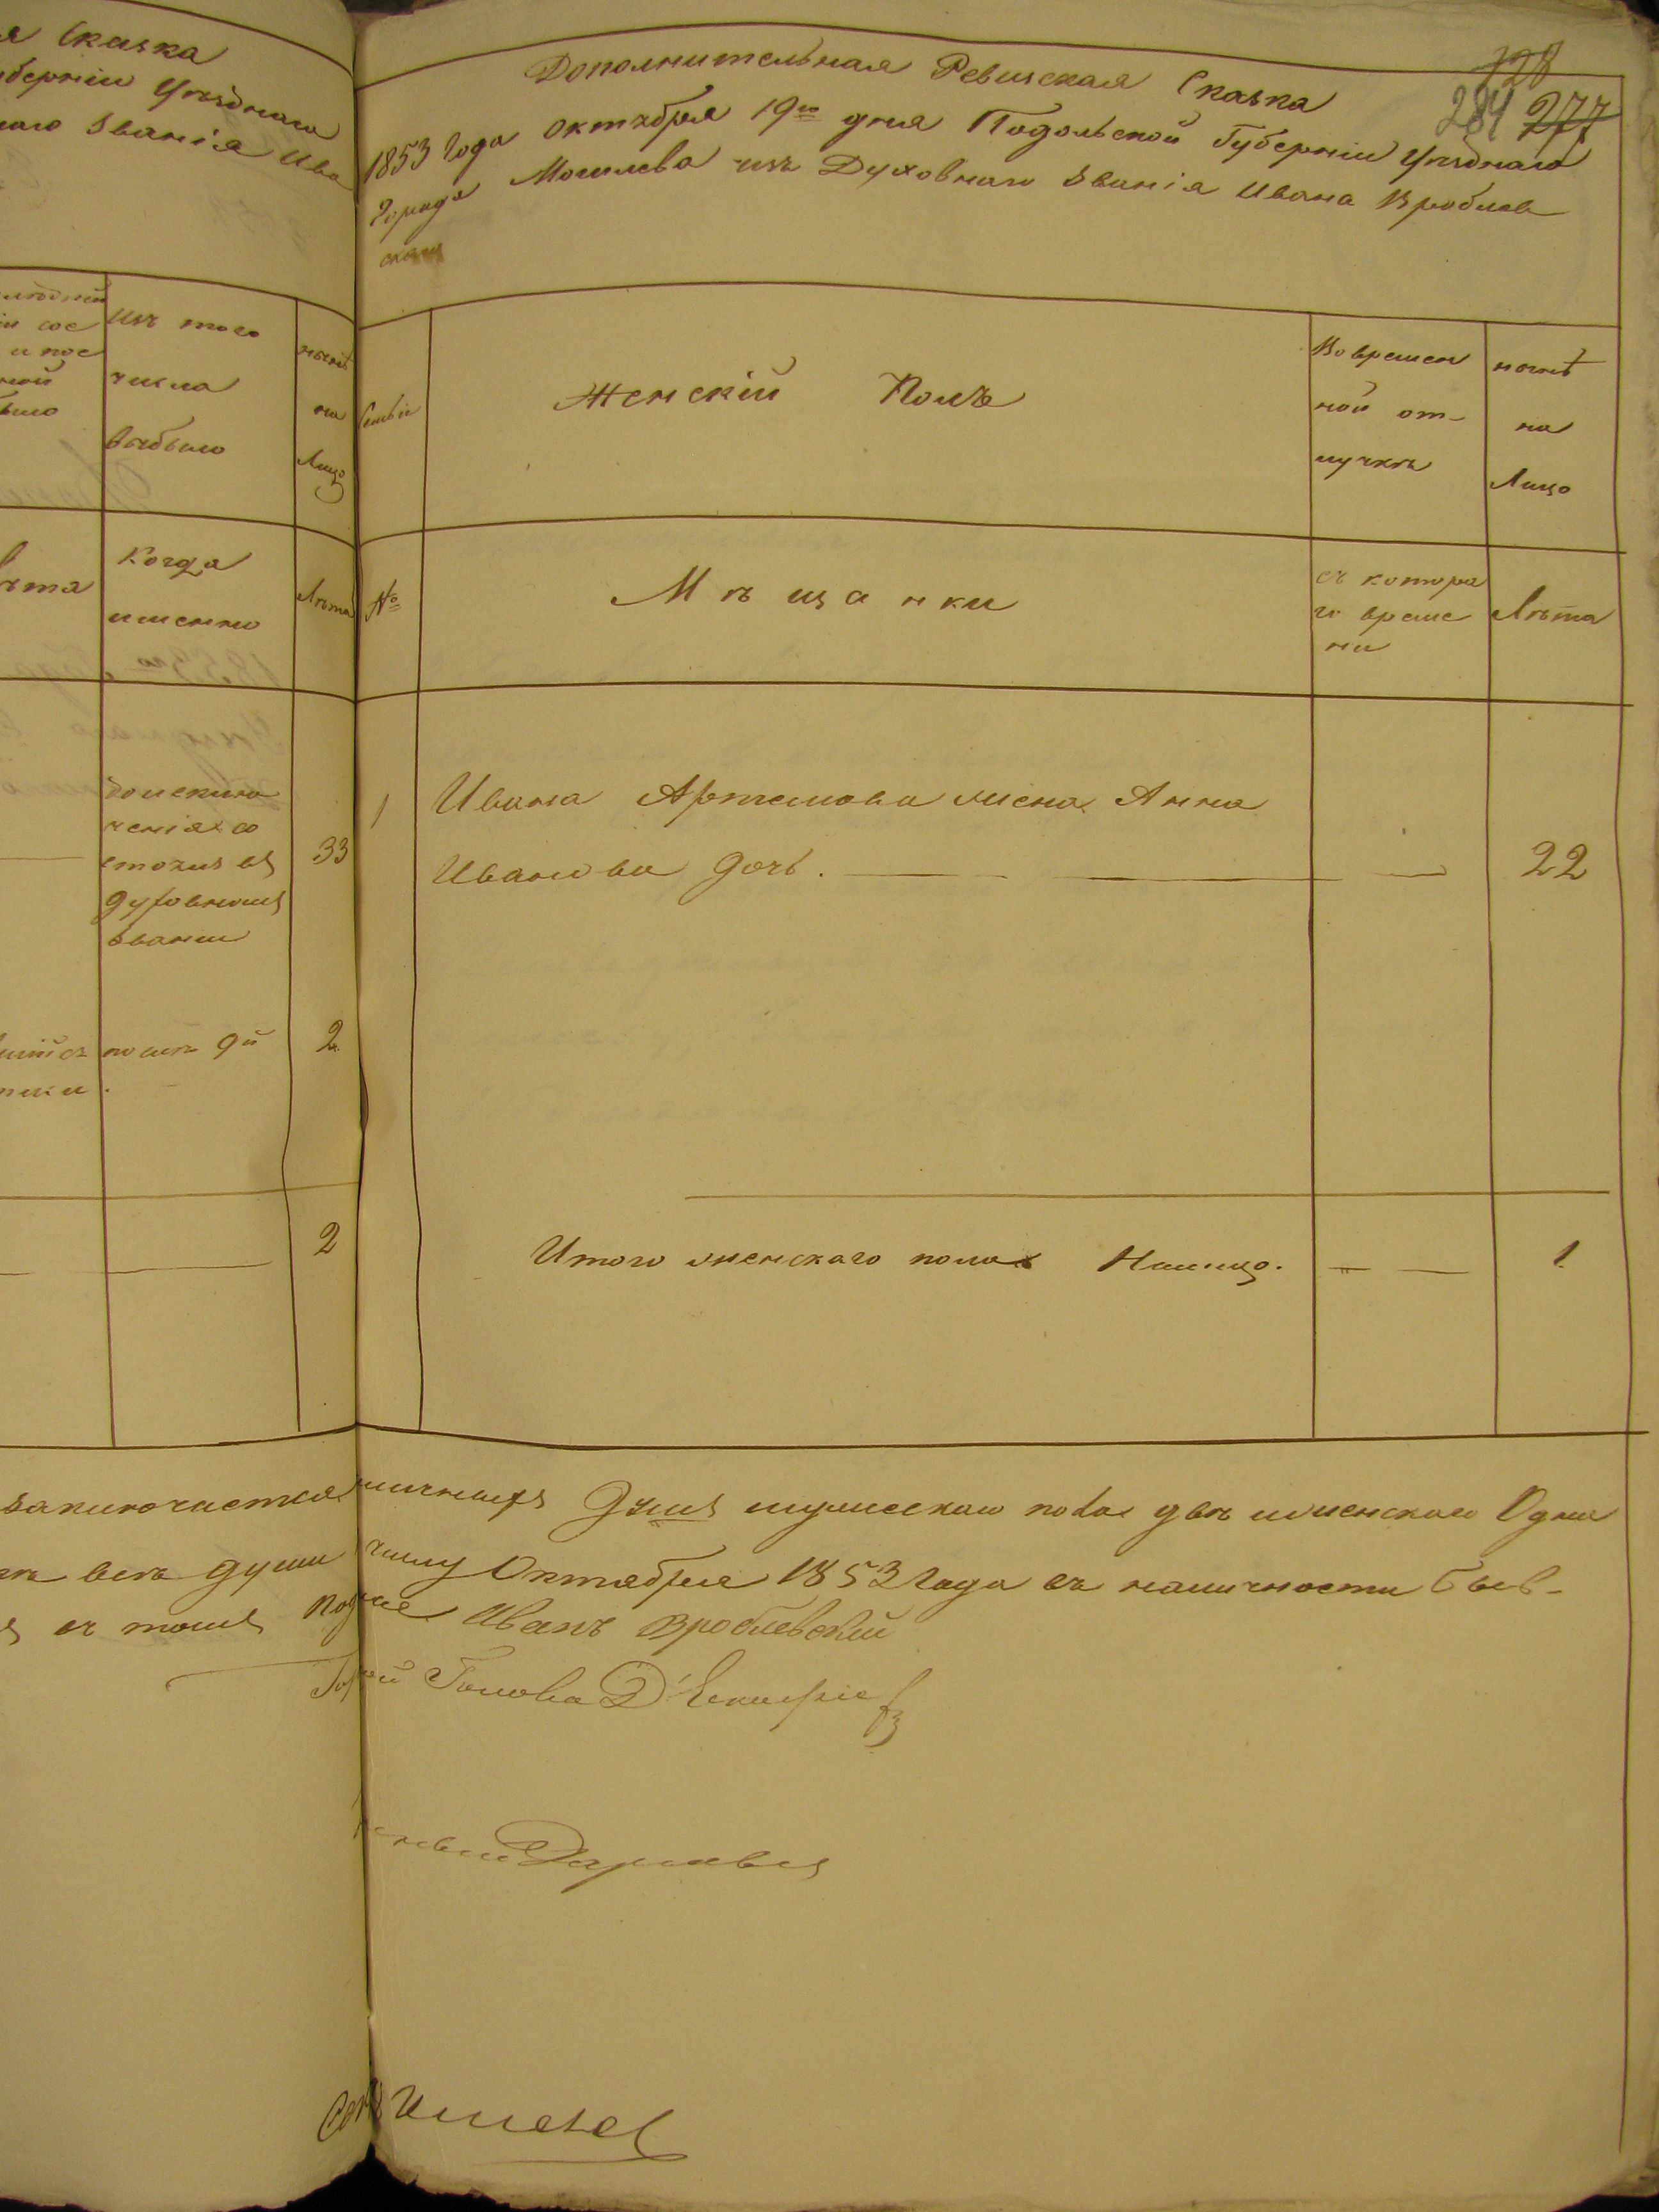 я Сказка
уберніи Уѣзднаго
наго Званія Ива
изъ того
числа
выбыло
нынѣ
на
Лицо
Когда
именно
Лѣта
доисклю
ченія со
стоялъ въ
духовномъ
званіи
33
9й
2
2
заключается
всѣ души
въ томъ
128
284 277
Дополнительная Ревизская Сказка
1853 Года Октября 19го дня Подольской Губерніи Уѣзднаго
Города Могилева изъ Духовнаго Званія Ивана Вроблев
скаго
Семьи
Женскій Полъ
Во времен
ной от-
лучкѣ
нынѣ
на
Лицо
№
Мѣщанки
съ котора
го време
ни
Лѣта
1 Ивана Артемова жена Анна
Иванова дочь. 22
Итого женскаго пола Налицо. 1
душъ мужескаго пола двѣ и женскаго Одна
числу Октября 1853 Года въ наличности быв-
Иванъ Вроблевскій
Голова